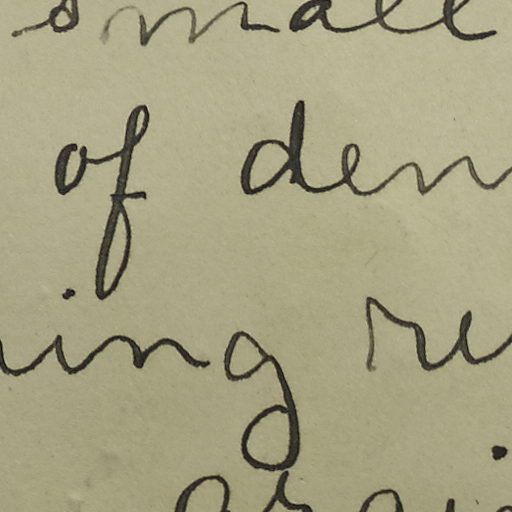 small
of den
ing re